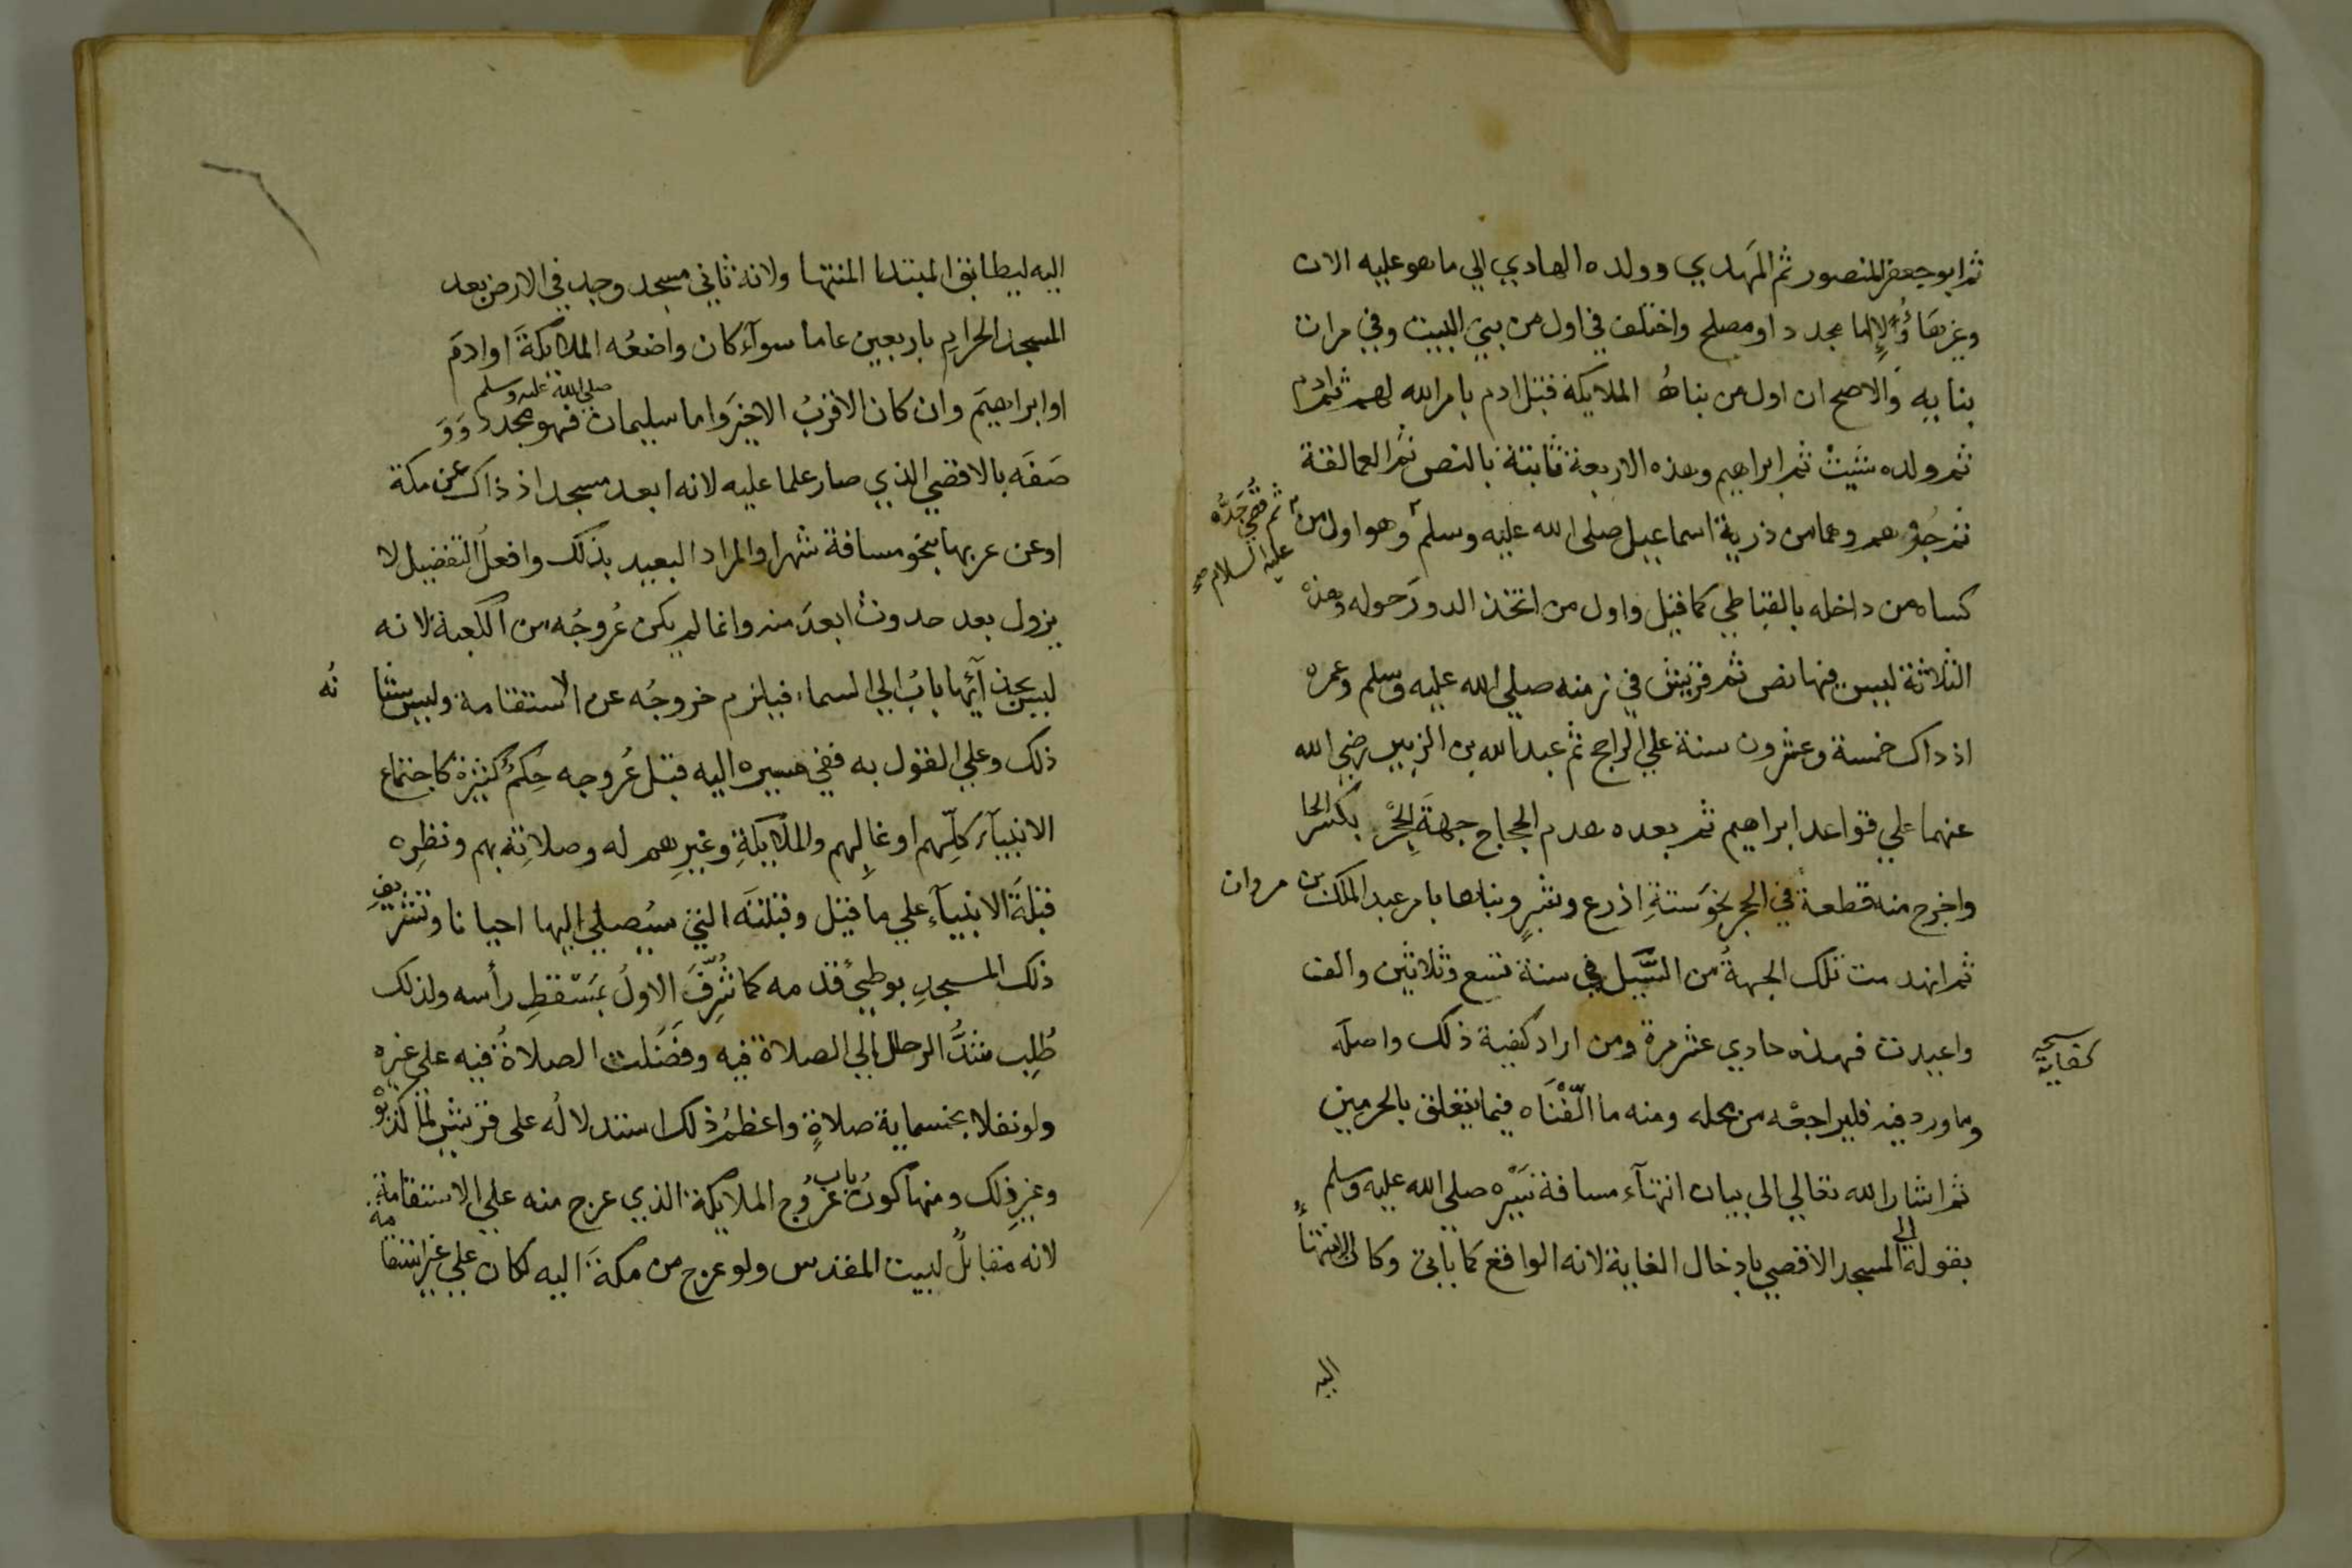 ثم ابو جعفر المنصور ثم المَهدي وولده الهادي الي ما هو عليه الان
وغيرهَاؤُلإِاما مجدد او مصلح واختلف في اول من بني البيت وفي مرات
بنايه وَالاصح ان اول من بناهُ الملايكة قبل ادم بامر الله لهم ثم ادم
ثم ولده شَيثْ ثم ابراهيم وهذه الاربعة ثابتة بالنص ثم العمالقة
ثم جُرهم وهما من ذرية اسماعيل صلى الله عليه وسلم وهو اول من
ثم قُصَي جَدُّه عليه السلام صح
كساه من داخله بالقباطي كما قيل واول من اتخذ الدورَ حوله وهذه
الثلاثة ليس فيها نص ثم قريش في زمنه صلي الله عليه وسلم وعمره
اذ داك خمسة وعشرون سنة علي الراجح ثم عبد الله بن الزبير رضي الله
عنهما علي قواعد ابراهيم ثم بعده هدم الحجاج جهةَ الحِجْر بكسر الحا
واخرج منه قطعة في الحجر نحوَ ستةِ اذرع وشبرٍ وبناها بامر عبد الملك بن مروان
ثم انهدمت تلك الجهةُ من السَّيل في سنة تسع وثلاثين والف
واعيدت فهذه حادي عشر مرة ومن اراد كيفية ذلك واصلَه
وما ورد فيه فليراجعْه من محله ومنه ما الّفْنَاه فيما يتعلق بالحرمين
ثم اشار الله تعالي الى بيان انتهآء مسافة سَيْره صلي الله عليه وسلم
بقوله الي المسجد الاقصي بادخال الغاية لانه الواقع كما ياتي وكان الانتهاءُ
اليه
اليه ليطابق المبتدا المنتها ولانه ثاني مسجد وجد في الارض بعد
المسجد الحرام باربعين عاما سوآءً كان واضعُه الملايكةَ او ادمَ
او ابراهيمَ وان كان الاقربُ الاخيرَ واما سليمان صلي الله عليه وسلم فهو مجدد وَوَ
صَفَه بالاقصي الذي صار علما عليه لانه ابعد مسجد اذ ذاك عن مكة
او عن عربها بنحو مسافة شهر او المراد البعيد بذلك وافعلُ التفضيل لا
يزول بعد حدوث ابعدَ منه وانما لم يكن عُروجُه من الكعبة لانه
ليس بحذآئها بابُ الي السماء فيلزم خروجُه عن الاستقامة وليس شا نُه
ذلك وعلي القول به ففي مسيره اليه قبل عُروجه حِكمٌ كثيرة كاجتماع
الانبيآءِ كلِّهم او غالِبهم والملايكةِ وغيرِهم له وصلاتِه بهم ونظرِه
قبلةَ الانبيآءِ علي ما قيل وقبلتَه التي سيُصلي اليها احيانا وتشريفِ
ذلك المسجدِ بوطئِ قدمه كما شُرِّفَ الاولُ بمَسْقطِ رأسه ولذلك
طُلِب شدُّ الرحال الي الصلاة فيه وفضَلت الصلاةُ فيه علي غيره
ولو نفلا بخمسماية صلاةٍ واعظمُ ذلك استدلالُه على قريش لما كذبوْ
وغيرِ ذلك ومنها كونُ باب عُروج الملايكة الذي عرج منه علي الاستقامة
لانه مقابلٌ لبيت المقدس ولو عرج من مكةَ اليه لكان علي غير استقا مة